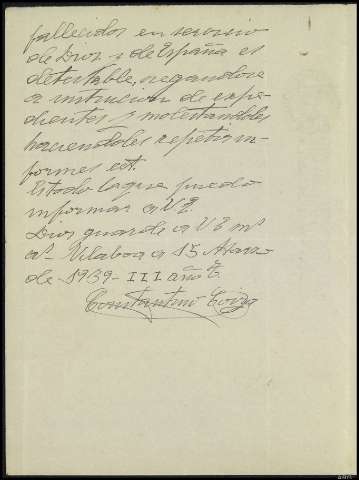 fallecidos en servicio
de Dios y de España es
detestable, negandose
a instrucion de expe-
dientes y molestandoles
haciendoles repetir in-
formes ect.
Es todo lo que puedo
informar a V.E.
Dios guarde a V E ms
as Vilaboa a 15 Marzo
de 1939 - III año T.
Constantino